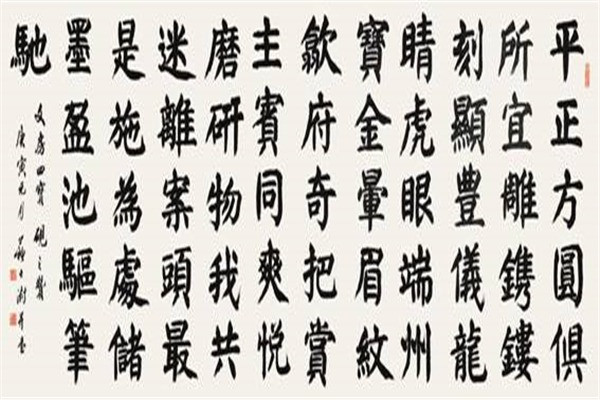 平正方圓俱
所宜雕鐫鏤
刻顯豐儀龍
睛虎眼端州
寶金暈眉紋
歙府奇把賞
主賓同爽悅
磨研物我共
迷離案頭最
是施為處儲
墨盈池驅筆
馳
文房四寶硯之贊
庚寅元月蘇士澍并書